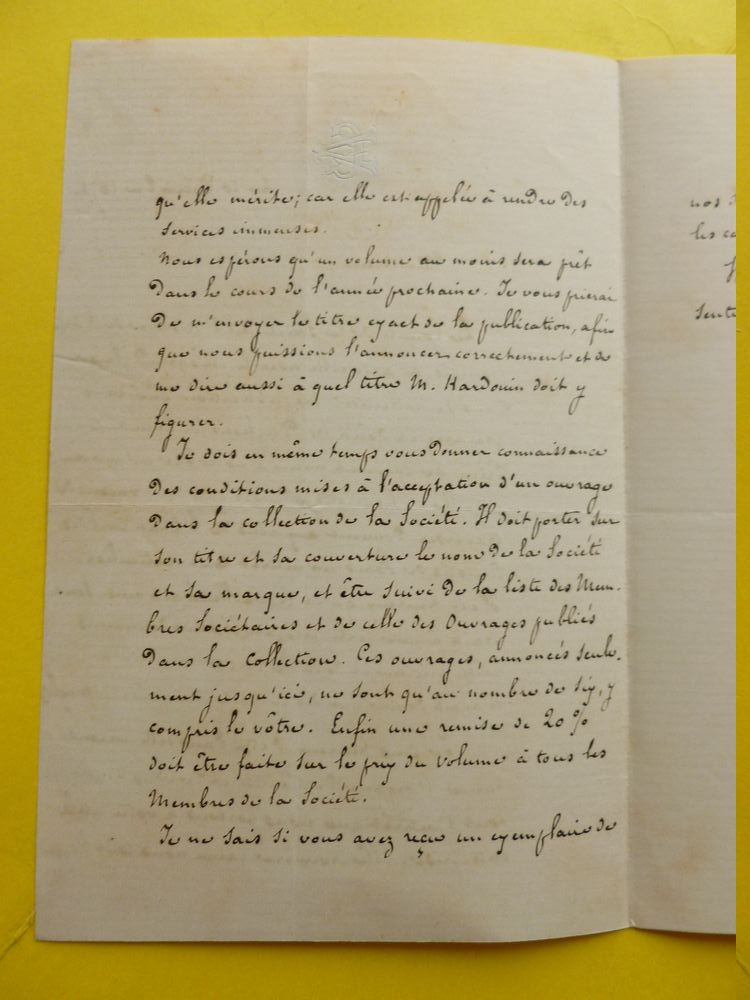 qu'elle mérite; car elle est appelée à rendre des
services immenses.
Nous espérons qu'un volume au moins sera prêt
Dans le cours de l'année prochaine. Je vous prierai
De m'envoyer le titre exact de la publication, afin
que nous puissions l'annoncer correctement et de
me dire aussi à quel titre M. Hardouin doit y
figurer.
Je dois en même temps vous Donner connaissance
Des conditions mises à l'acceptation d'un ouvrage
Dans la collection de la Société. Il doit porter sur
son titre et sa couverture le nom De la Société
et sa marque, et être suivi De la liste des Mem-
bres Sociétaires et de celle des Ouvrages publiés
Dans la Collection. Ces ouvrages, annoncés seule-
ment jusqu'ici, ne sont qu'au nombre de six, y
compris le vôtre. Enfin une remise de 20 %
doit être faite sur le prix du volume à tous les
Membres de la Société.
Je ne sais si vous avez reçu un exemplaire de
nos
les